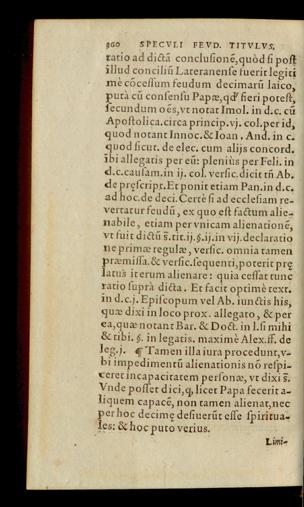 360 SPECVLI FEVD. TITVLVS,
ratio ad dictā conclusionē, quòd si post
illud conciliū Lateranense fuerit legiti
mè cōcessum feudum decimarū laico,
putà cū consensu Papæ, qđ fieri potest,
secundum oēs, vt notat Imol. in d.c. cū
Apostolica. circa princip. vj. col. per id,
quod notant Innoc. & Ioan. And. in c.
quod sicut. de elec. cum alijs concord.
ibi allegatis per eū: pleniùs per Feli. in
d.c. causam. in ij. col. versic. dicit tñ Ab.
de præscript. Et ponit etiam Pan. in d.c.
ad hoc. de deci. Certè si ad ecclesiam re-
uertatur feudū, ex quo est factum alie-
nabile, etiam per vnicam alienationē,
vt fuit dictū s̄. tit. ij. §. ij. in vij. declaratio
ne primæ regulæ, versic. omnia tamen
præmissa. & versic. sequenti, poterit præ
latus iterum alienare: quia cessat tunc
ratio suprà dicta. Et facit optimè text.
in d.c. j. Episcopum vel Ab. iunctis his,
quæ dixi in loco prox. allegato, & per
ea, quæ notant Bar. & Doct. in l. si mihi
& tibi. §. in legatis. maximè Alex. ff. de
leg. j. ¶ Tamen illa iura procedunt, v-
bi impedimentū alienationis nō respi-
ceret incapacitatem personæ, vt dixi s̄.
Vnde posset dici, q, licet Papa fecerit a-
liquem capacē, non tamen alienat, nec
per hoc decimę desierūt esse spiritua-
les: & hoc puto verius.
Limi-